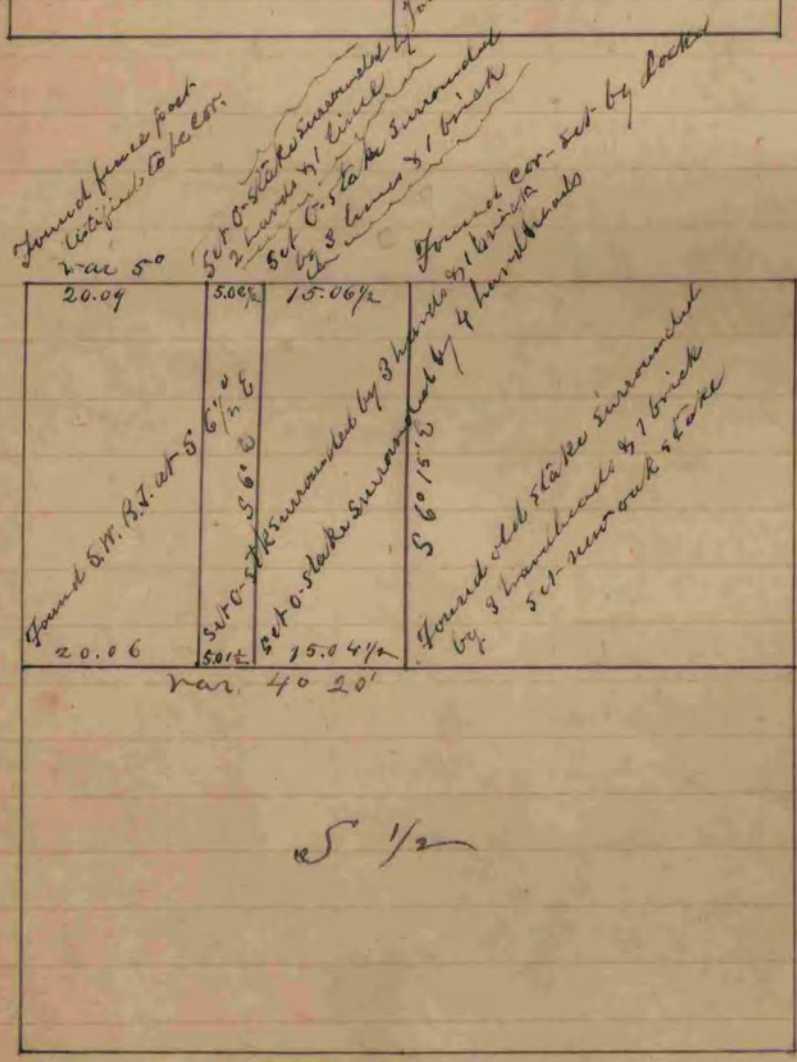 Found fence post
testified to be cor.
var 5°
Set O-stake surrounded by
2 hards & 1 lime
Set O-stake surrounded
by 3 limes & 1 brick
Found cor- set by Locke
20.09
5.02½
15.06½
Found S.W. B.T. at S 6½° E
S 6° E
Set O-stk surrounded by 3 hards & 1 brick
Set O-stake surrounded by 4 hardheads
S 6° 15' E
Found old stake surrounded
by 3 hardheads & 1 brick
Set new oak stake
20.06
5.01½
15.04½
var. 4° 20'
S 1/2